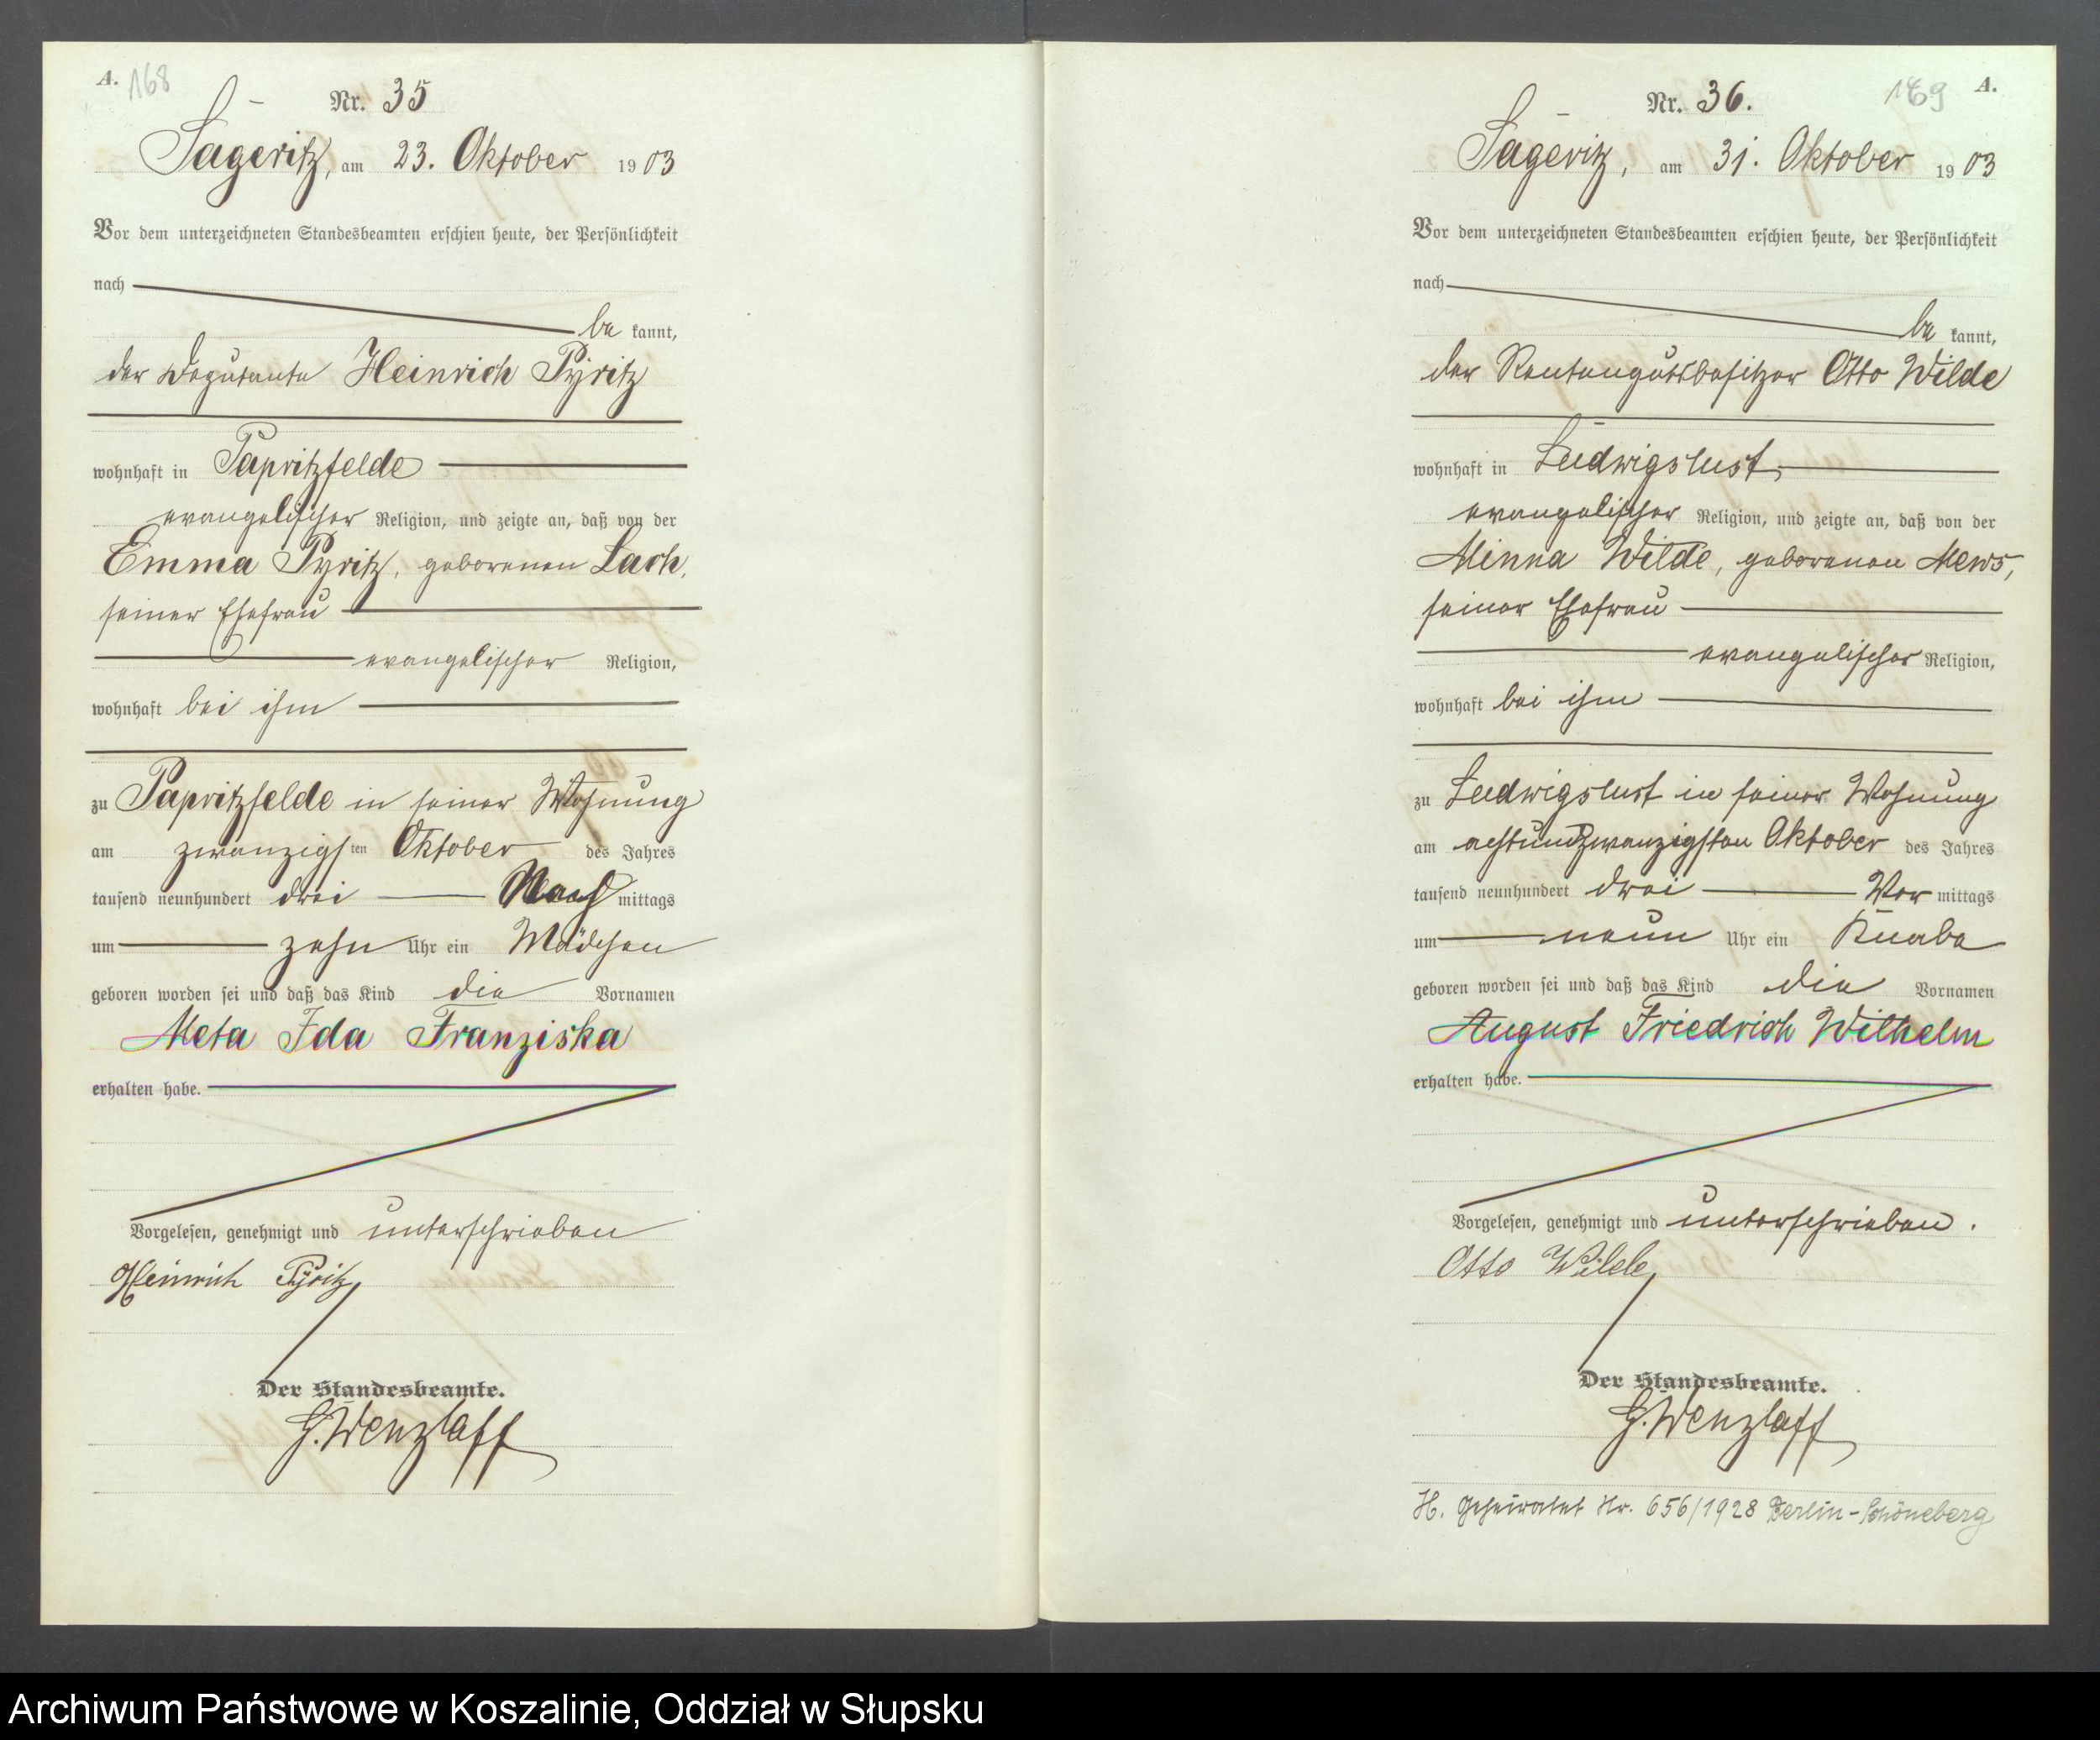 A. 168
Nr. 35
Sageritz, am 23. Oktober 1903
Vor dem unterzeichneten Standesbeamten erschien heute, der Persönlichkeit
nach
be kannt,
der Deputante Heinrich Pyritz
wohnhaft in Papritzfelde
evangelischer Religion, und zeigte an, daß von der
Emma Pyritz, geborenen Lach,
seiner Ehefrau
evangelischer Religion,
wohnhaft bei ihm
zu Papritzfelde in seiner Wohnung
am zwanzigsten Oktober des Jahres
tausend neunhundert drei Nach mittags
um zehn Uhr ein Mädchen
geboren worden sei und daß das Kind die Vornamen
Meta Ida Franziska
erhalten habe.
Vorgelesen, genehmigt und unterschrieben
Heinrich Pyritz
Der Standesbeamte.
G. Wenzlaff
169 A.
Nr. 36.
Sageritz, am 31. Oktober 1903
Vor dem unterzeichneten Standesbeamten erschien heute, der Persönlichkeit
nach
be kannt,
der Rentengutsbesitzer Otto Wilde
wohnhaft in Ludwigslust,
evangelischer Religion, und zeigte an, daß von der
Minna Wilde, geborenen Mews,
seiner Ehefrau
evangelischer Religion,
wohnhaft bei ihm
zu Ludwigslust in seiner Wohnung
am achtundzwanzigsten Oktober des Jahres
tausend neunhundert drei Vor mittags
um neun Uhr ein Knabe
geboren worden sei und daß das Kind die Vornamen
August Friedrich Wilhelm
erhalten habe.
Vorgelesen, genehmigt und unterschrieben.
Otto Wilde
Der Standesbeamte.
G. Wenzlaff
H. Geheiratet Nr. 656/1928 Berlin-Schöneberg
Archiwum Państwowe w Koszalinie, Oddział w Słupsku